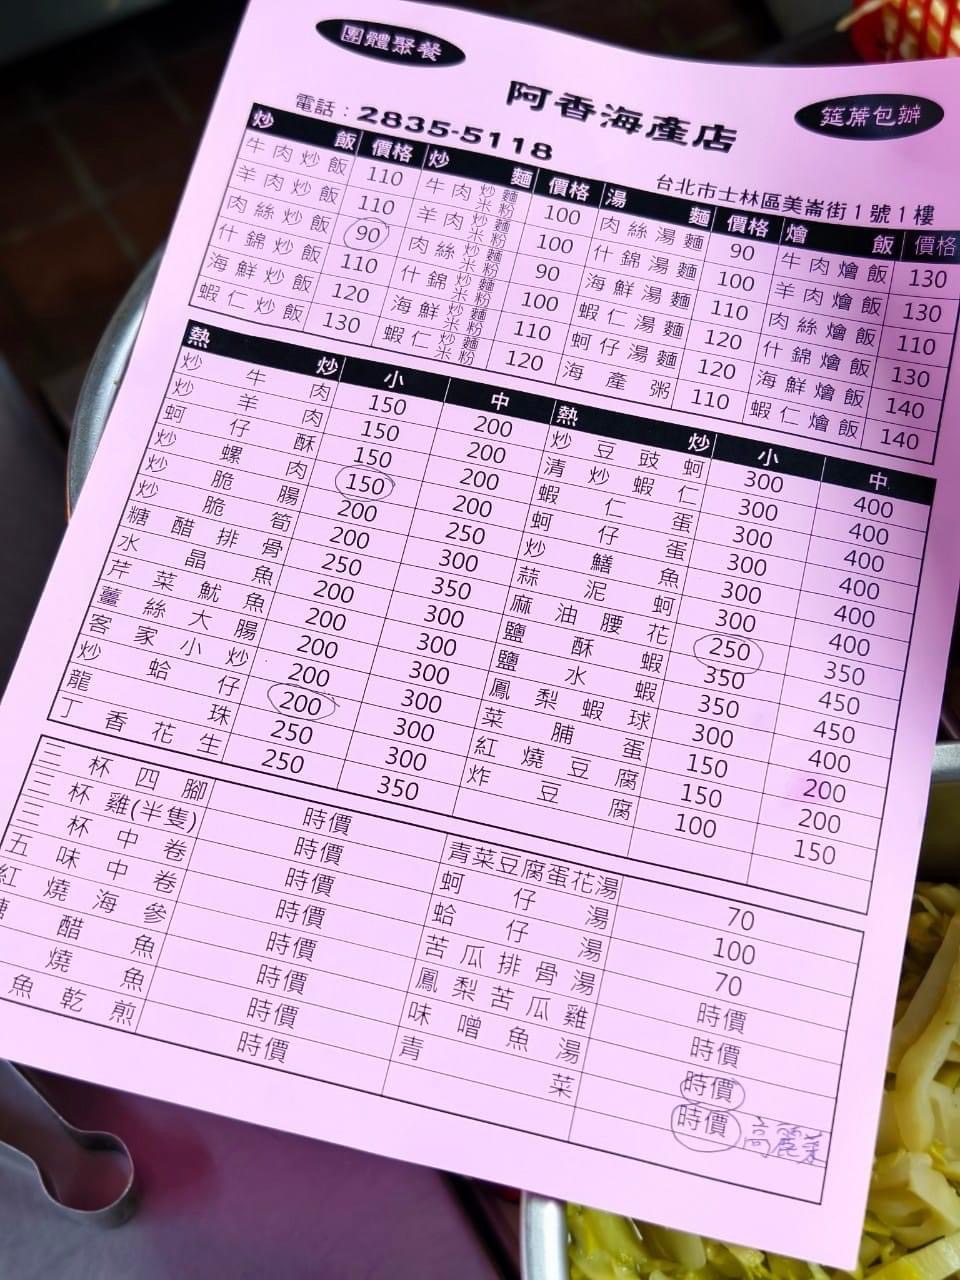 團體聚餐
阿香海產店
筵蓆包辦
電話：2835-5118
台北市士林區美崙街1號1樓
炒飯 價格 炒麵 價格 湯麵 價格 燴飯 價格
牛肉炒飯 110 牛肉炒麵米粉 100 肉絲湯麵 90 牛肉燴飯 130
羊肉炒飯 110 羊肉炒麵米粉 100 什錦湯麵 100 羊肉燴飯 130
肉絲炒飯 90 肉絲炒麵米粉 90 海鮮湯麵 110 肉絲燴飯 110
什錦炒飯 110 什錦炒麵米粉 100 蝦仁湯麵 120 什錦燴飯 130
海鮮炒飯 120 海鮮炒麵米粉 110 蚵仔湯麵 120 海鮮燴飯 140
蝦仁炒飯 130 蝦仁炒麵米粉 120 海產粥 110 蝦仁燴飯 140
熱炒 小 中 熱炒 小 中
炒牛肉 150 200 炒豆豉蚵 300 400
炒羊肉 150 200 清炒蝦仁 300 400
蚵仔酥 150 200 蝦仁蛋 300 400
炒螺肉 150 200 蚵仔蛋 300 400
炒脆腸 200 250 炒鱔魚 300 400
炒脆筍 200 300 蒜泥蚵 300 400
糖醋排骨 250 350 麻油腰花 250 350
水晶魚 200 300 鹽酥蝦 350 450
芹菜魷魚 200 300 鹽水蝦 350 450
薑絲大腸 200 300 鳳梨蝦球 300 400
客家小炒 200 300 菜脯蛋 150 200
炒蛤仔 200 300 紅燒豆腐 150 200
龍珠 250 300 炸豆腐 100 150
丁香花生 250 350
三杯四腳 時價 青菜豆腐蛋花湯 70
三杯雞(半隻) 時價 蚵仔湯 100
三杯中卷 時價 蛤仔湯 70
五味中卷 時價 苦瓜排骨湯 時價
紅燒海參 時價 鳳梨苦瓜雞 時價
醋魚 時價 味噌魚湯 時價
燒魚 時價 青菜 時價 高麗菜
魚乾煎 時價